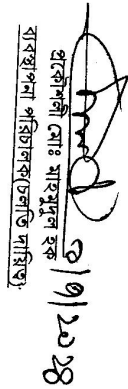 প্রকৌশলী মোঃ মাহমুদুল হক
ব্যবস্থাপনা পরিচালক(চলতি দায়িত্ব)